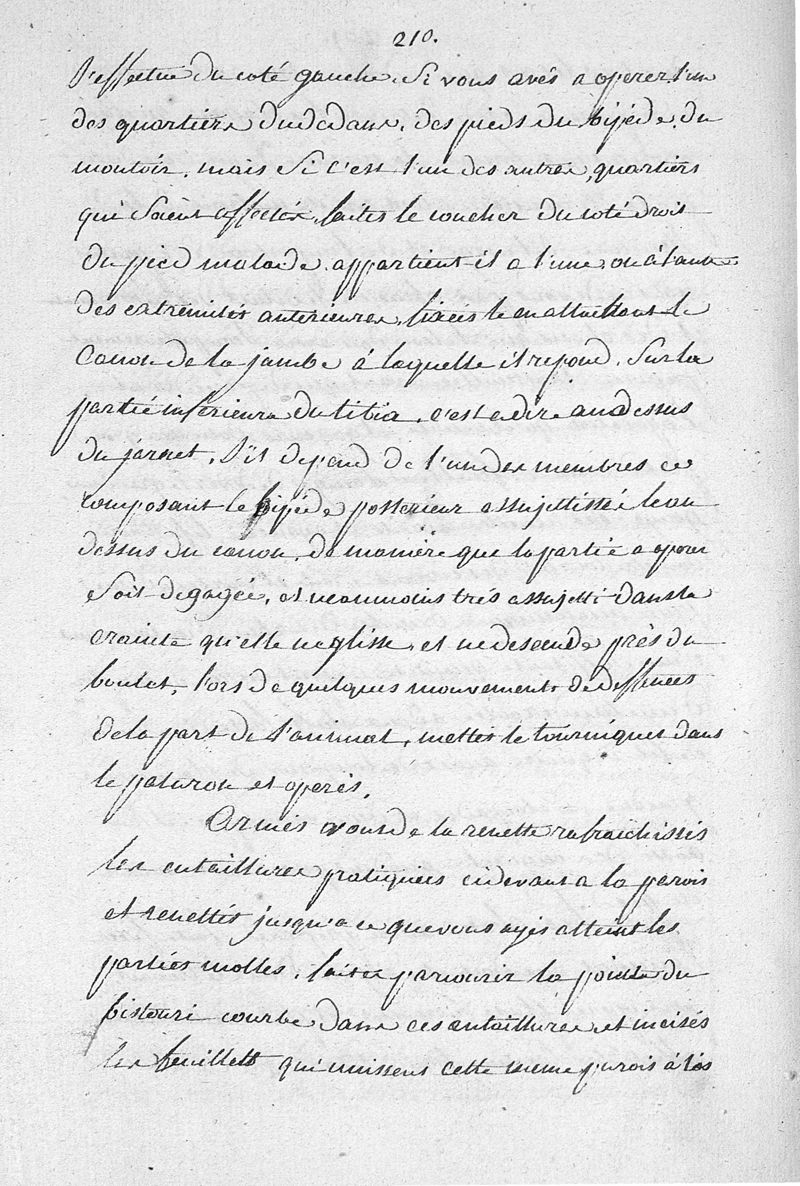 210.
s'effectue du coté gauche. Si vous avés a operer l'un
des quartiers dudedans, des pieds du bipéde du
montoir, mais si c'est l'un des autres quartiers
qui soient affectés, faites le coucher du coté droit
du pied malade. appartient il a l'une, ou à l'autre
des extremités anterieures, fixés le en attachant le
canon de la jambe à laquelle il repond, sur la
partie inferieure du tibia, c'est a dire audessus
du jarret, s'il depend de l'un des membres
composant le bipéde posterieur assujettissés le au
dessus du canon, de manière que la partie a operer
soit degagée, et neanmoins tres assujetti dans la
crainte qu'elle ne glisse, et ne descende près du
boulet, l'ors de quelques mouvements de deffences
de la part de l'animal, mettes le tourniquet dans
le paturon et operés.
Armés vous de la renette rafraichissés
les entaillures pratiquées cidevant a la parois
et renettés jusqu'a ce que vous ayés atteint les
parties molles, faites parcourir la pointe du
bistouri courbe dans ces entaillures et incisés
les feuillets qui unissent cette meme parois à l'os